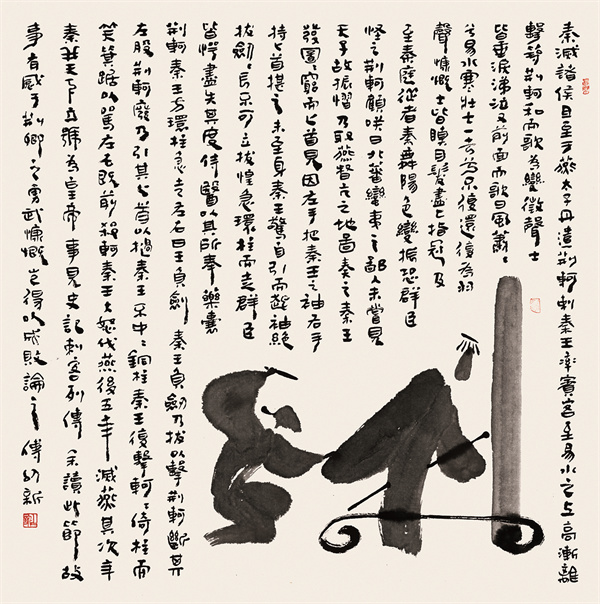 秦滅諸侯且至于燕太子丹遣荊軻刺秦王率賓客至易水之上高漸離
擊筑荊軻和而歌為變徵聲士
皆垂淚涕泣又前而歌曰風蕭〻
兮易水寒壯士一去兮不復還復為羽
聲慷慨士皆瞋目髮盡上指冠及
至秦庭從者秦舞陽色變振恐群臣
怪之荊軻顧哄曰北蕃蠻夷之鄙人未嘗見
天子故振慴乃取燕督亢之地圖奏之秦王
發圖〻窮而匕首見因左手把秦王之袖右手
持匕首揕之未至身秦王驚自引而起袖絕
拔劍〻長不可立拔惶急環柱而走群臣
皆愕盡失其度侍醫以其所奉藥囊
荊軻秦王方環柱急走左右曰王負劍秦王負劍乃拔以擊荊軻斷其
左股荊軻廢乃引其匕首以擿秦王不中〻銅柱秦王復擊軻〻倚柱而
笑箕踞以罵左右既前殺軻秦王大怒伐燕後五年滅燕其次年
秦并天下立號為皇帝事見史記刺客列傳余讀此節故
事有感于荊卿之勇武慷慨豈得以成敗論之傅幼新